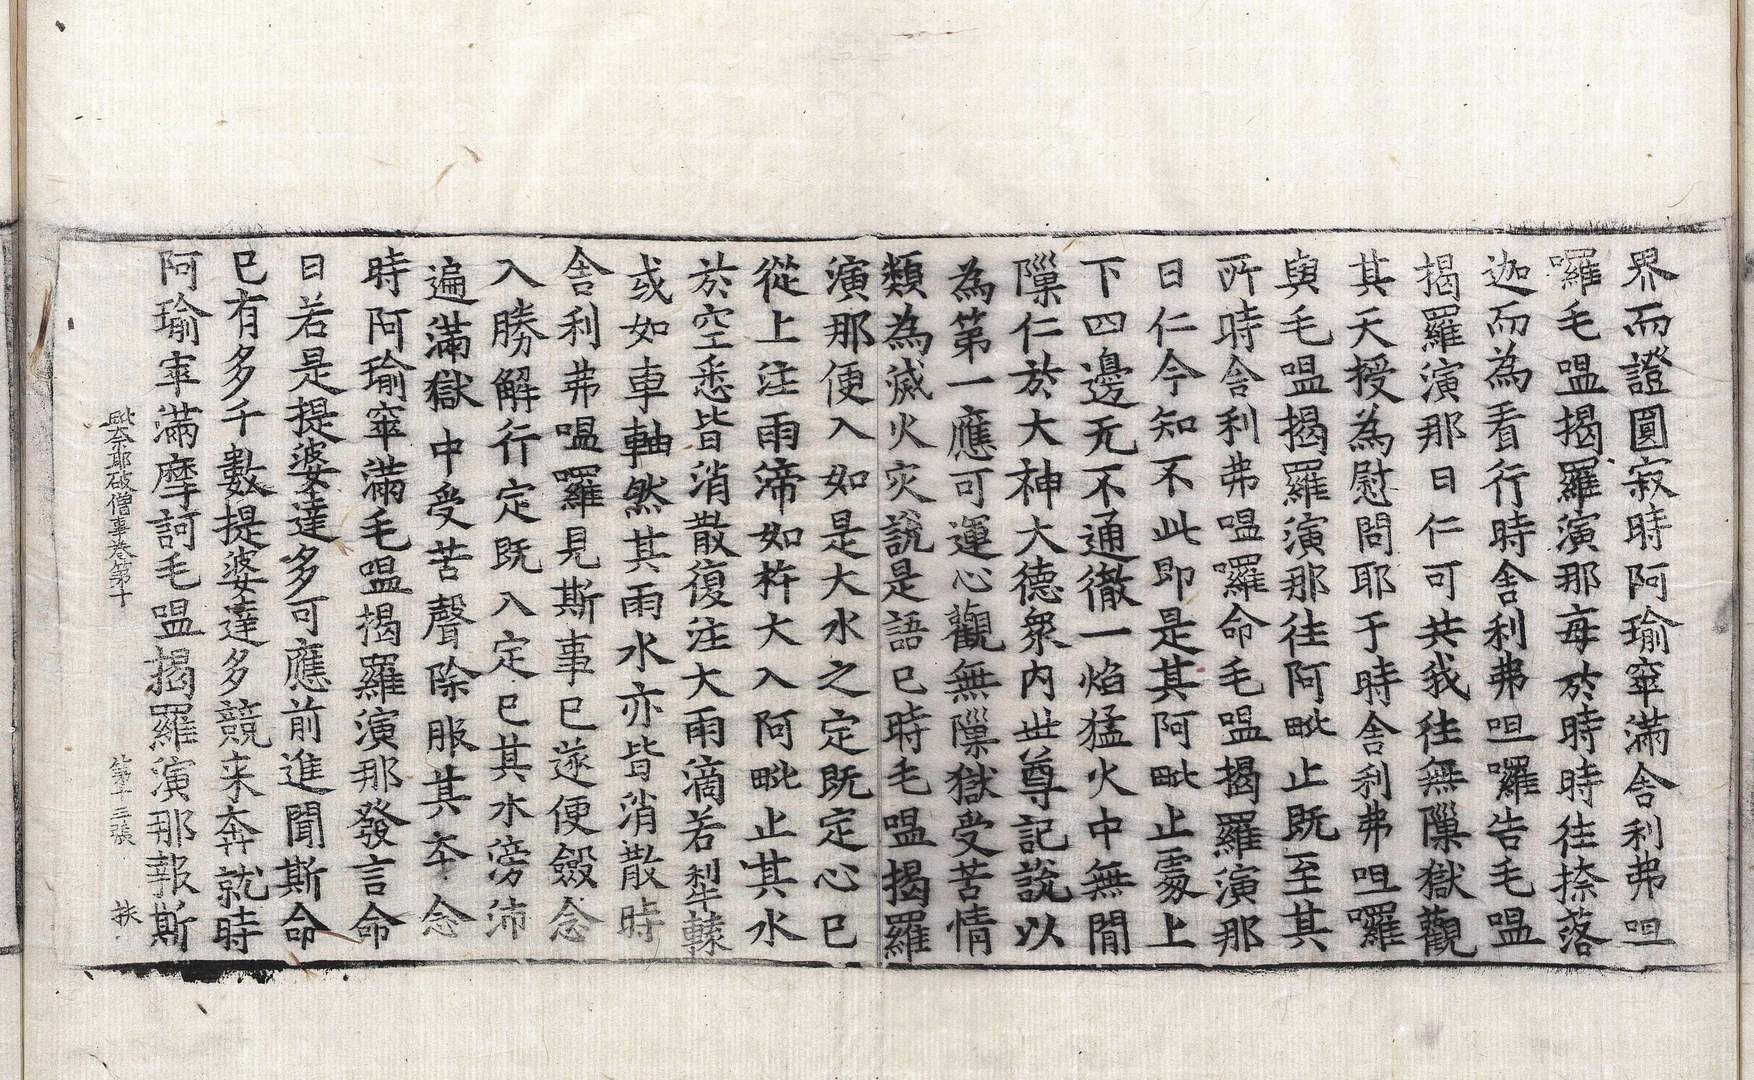 界而證圓寂時阿瑜窣滿舍利弗呾
囉毛嗢揭羅演那每於時時往捺落
迦而為看行時舍利弗呾囉告毛嗢
揭羅演那曰仁可共我往無隟獄觀
其天授為慰問耶于時舍利弗呾囉
與毛嗢揭羅演那往阿毗止既至其
所時舍利弗嗢囉命毛嗢揭羅演那
曰仁今知不此即是其阿毗止處上
下四邊无不通徹一焰猛火中無閒
隟仁於大神大德眾內世尊記說以
為第一應可運心觀無隟獄受苦情
類為滅火灾說是語已時毛嗢揭羅
演那便入如是大水之定既定心已
從上注雨渧如杵大入阿毗止其水
於空悉皆消散復注大雨滴若犁轅
或如車軸然其雨水亦皆消散時
舍利弗嗢囉見斯事已遂便斂念
入勝解行定既入定已其水滂沛
遍滿獄中受苦聲除服其夲念
時阿瑜窣滿毛嗢揭羅演那發言命
曰若是提婆達多可應前進聞斯命
已有多千數提婆達多競来奔就時
阿瑜窣滿摩訶毛嗢揭羅演那報斯
毗奈耶破僧事卷第十 第十三張 扶